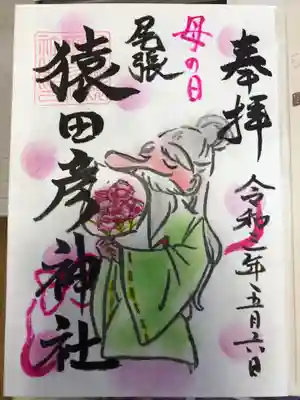 奉拝
令和三年五月六日
母の日
尾張
猿田彦神社